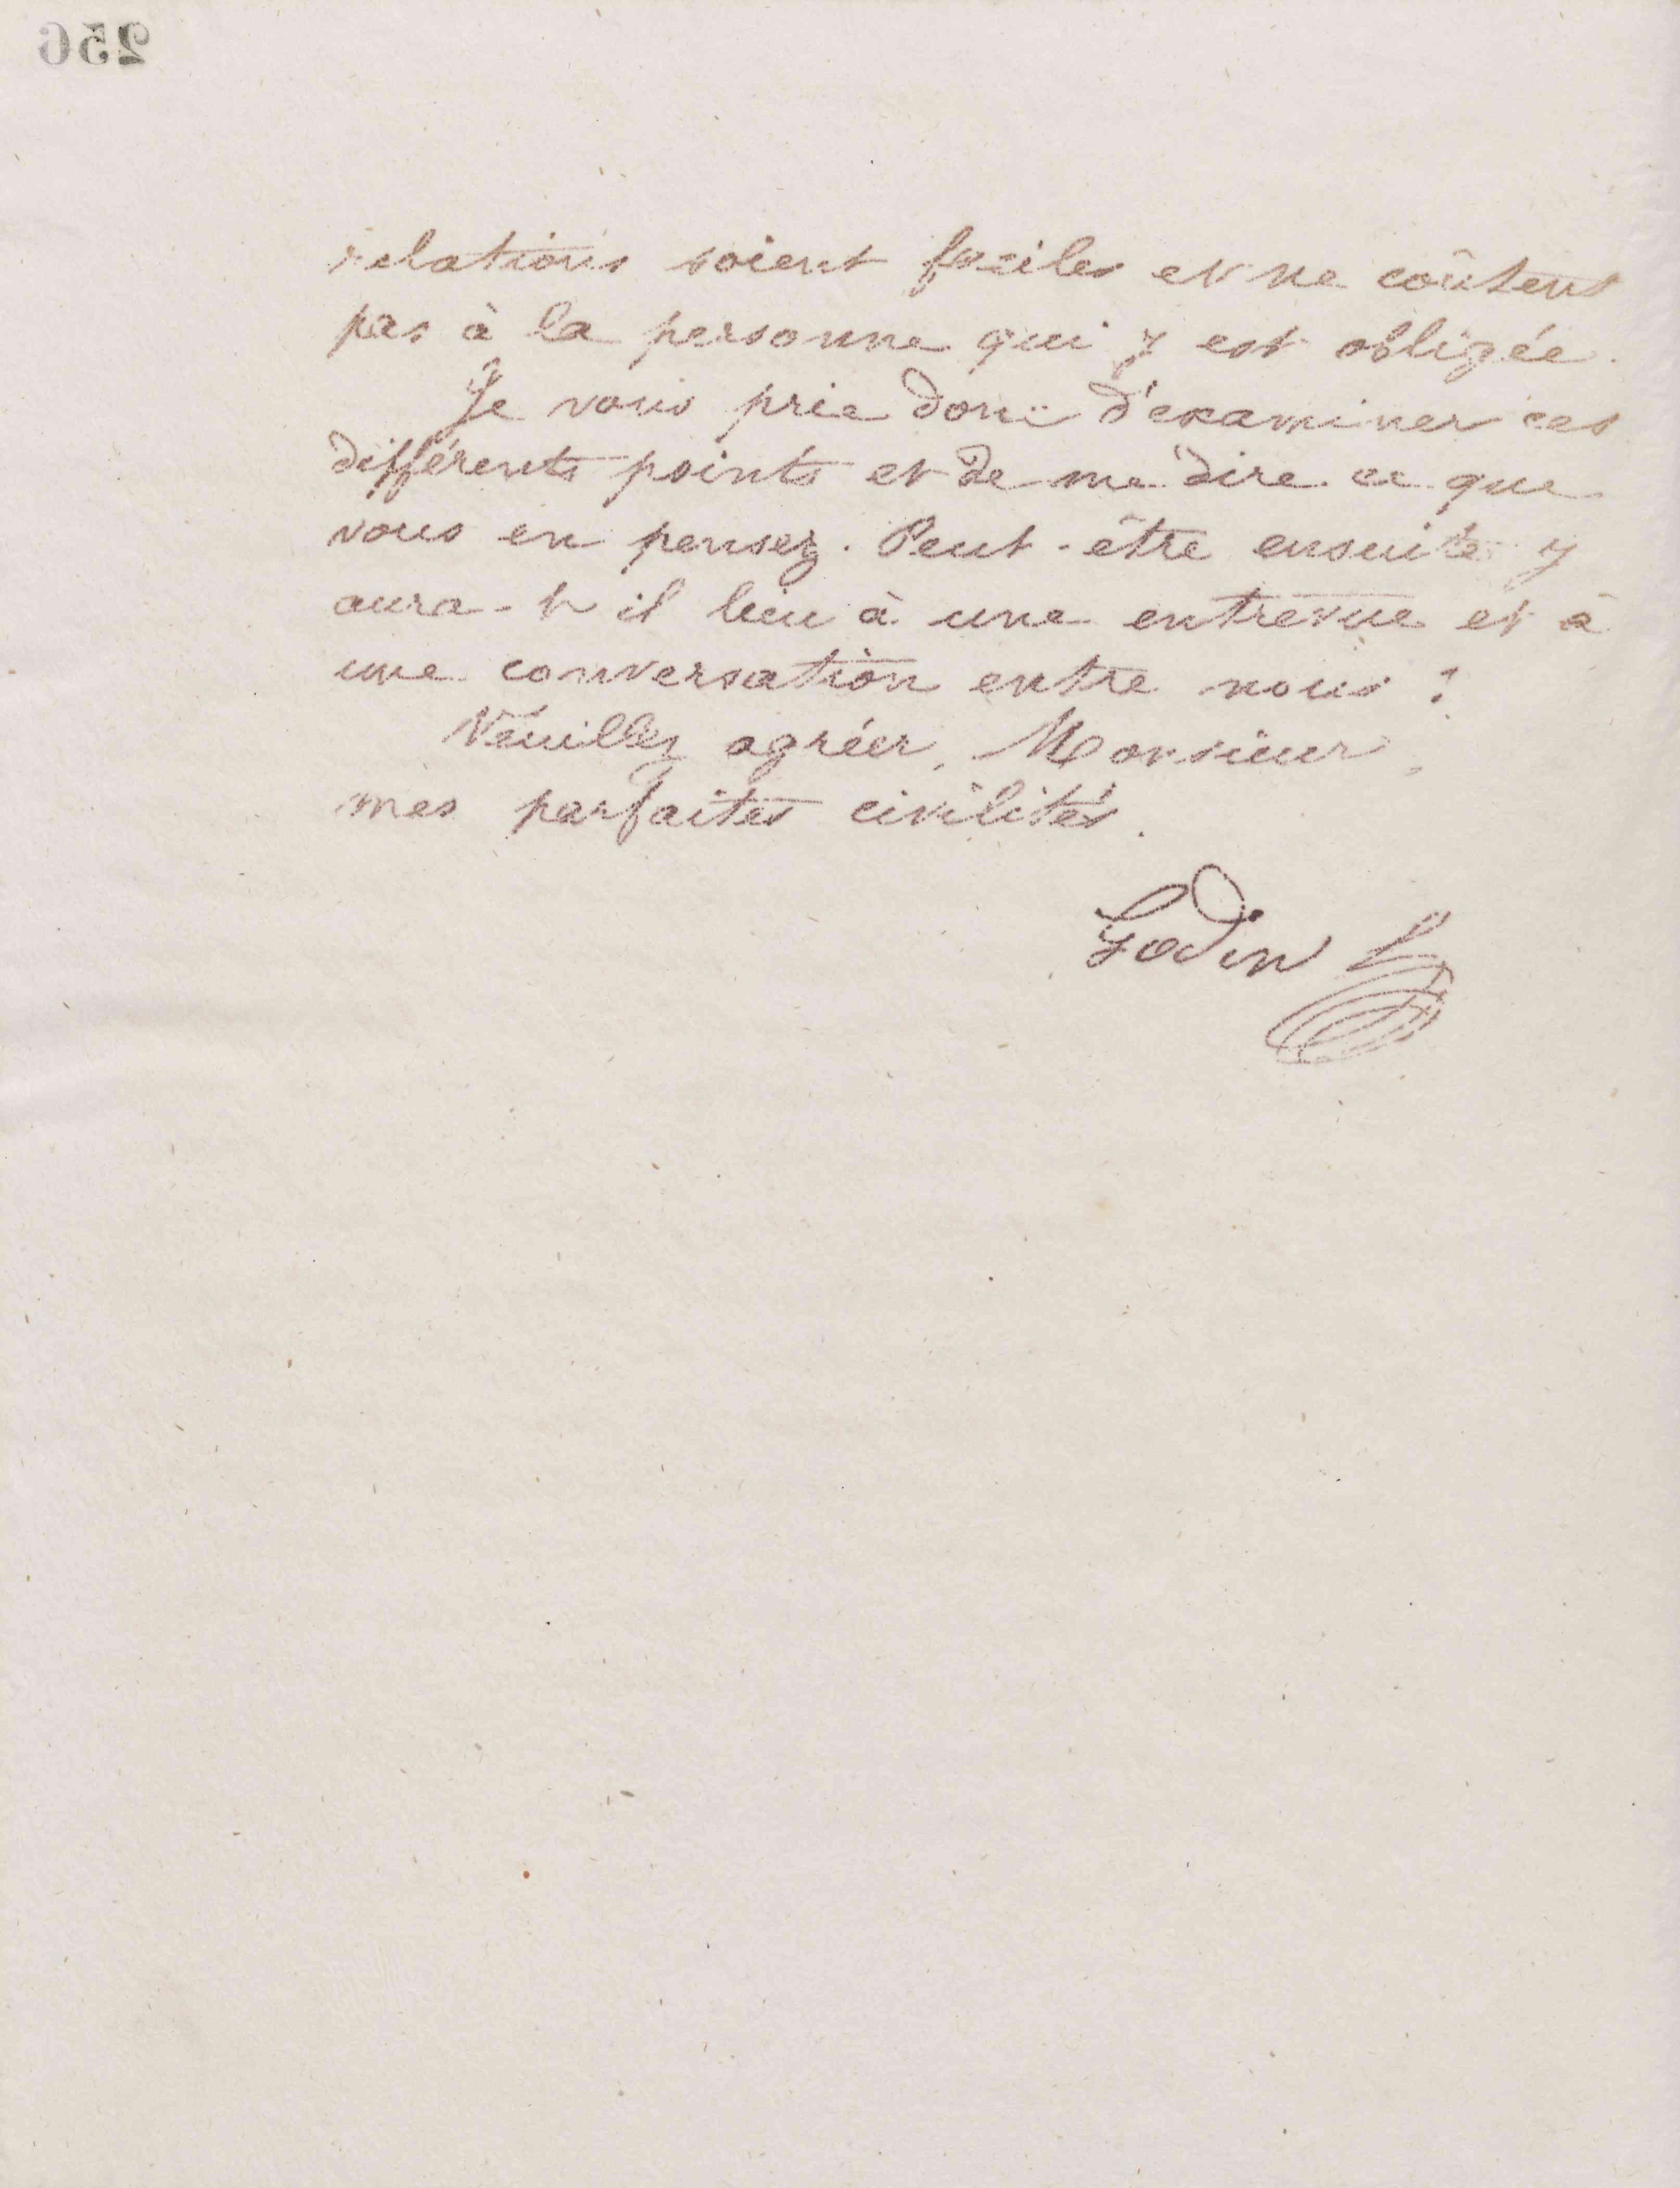 256
relations soient faciles et ne coûtent
pas à la personne qui y est obligée.
Je vous prie donc d'examiner ces
différents points et de me dire ce que
vous en pensez. Peut-être ensuite y
aura-t-il lieu à une entrevue et à
une conversation entre nous ?
Veuillez agréer, Monsieur,
mes parfaites civilités.
Godin